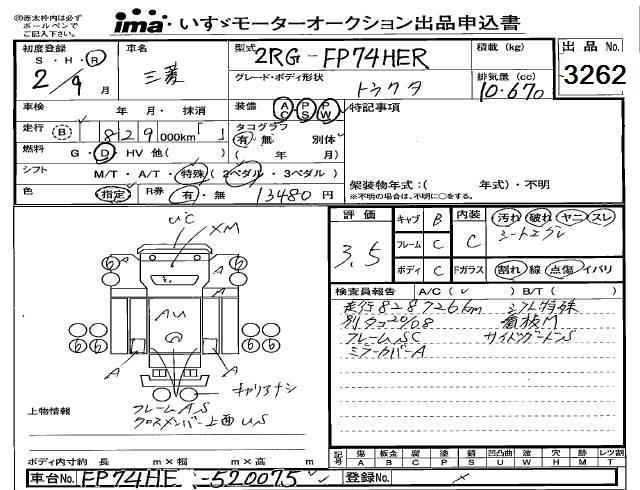 ㊟赤太枠内は必ず
ボールペンで
ご記入下さい。
ima いすゞモーターオークション出品申込書
初度登録 S・H・R 2/9月
車名 三菱
型式 2RG-FP74HER
積載 (kg)
出品No. 3262
グレード・ボディ形状 トラクタ
排気量(cc) 10.670
車検 年・月・抹消
装備 AC PS PW
特記事項
走行 B 829000km「 」
タコグラフ 有 無 別体
( 年 月)
燃料 G・D・HV 他( )
シフト M/T・A/T・特殊 (2ペダル・3ペダル)
色 指定 R券 有・無 13480円
架装物年式:( 年式)・不明
※不明の場合は、不明に○をする。
評価 3.5
キャブ B
フレーム C
ボディ C
内装 C
汚れ 破れ ヤニ スレ
シートエグレ
Fガラス 割れ 線 点傷 イバリ
検査員報告 A/C(✓) B/T( )
走行828726km シフト特殊
別タコ20/08 看板M
フレームSC サイドガードンS
ミラーカバーA
UC
XM
AU
A
A
A
A
キャリアナシ
フレームAS
クロスメンバー上面US
上物情報
ボディ内寸約 長 m×幅 m×高 m
記号 傷 板金 腐 塗 錆 凹凸曲 波 穴 跡 レツ割
A B C P S U W H M T
車台No. FP74HE-520075
登録No.